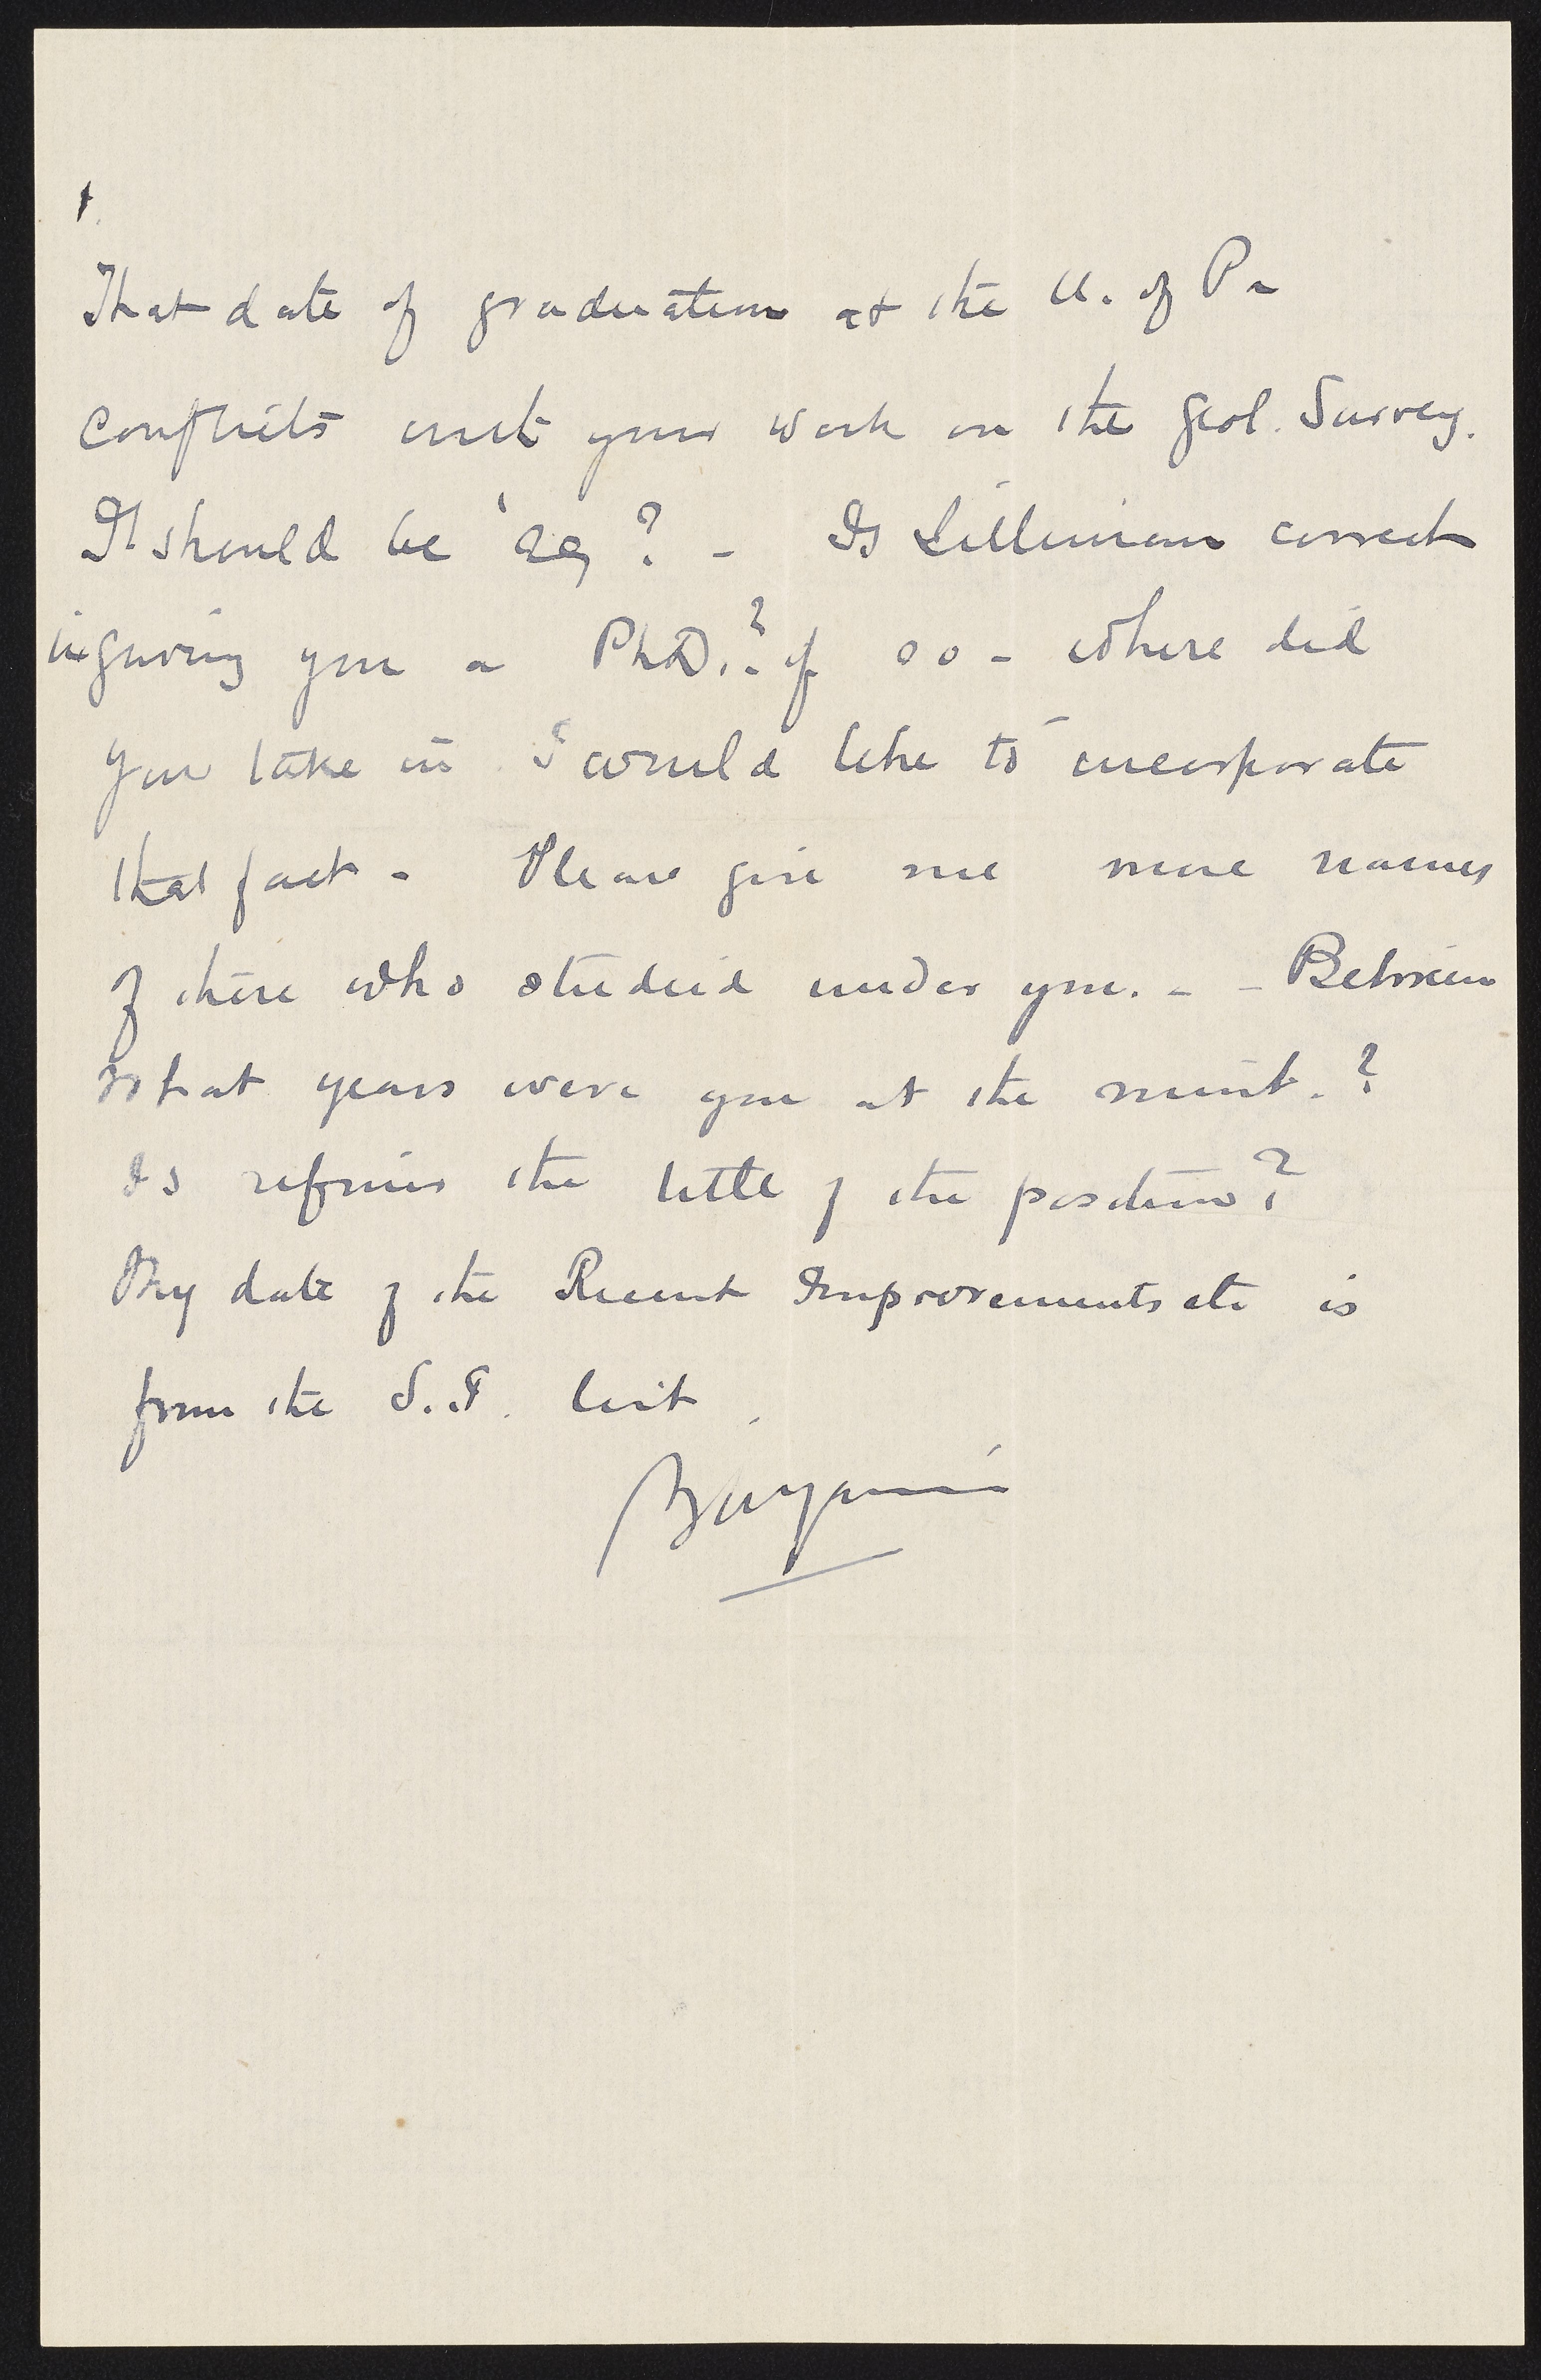 That date of graduation at the U. of Pa
conflicts with your work on the Geol. Survey.
It should be ? - Is Silliman correct
in giving you a PhD.? if so - where did
you take it. I would like to incorporate
that fact - Please give me more names
of those who studied under you. - - Between
what years were you at the mint. ?
Is refiner the title of the position?
My date of the Recent Improvements etc is
from the S.I. list.
Benjamin